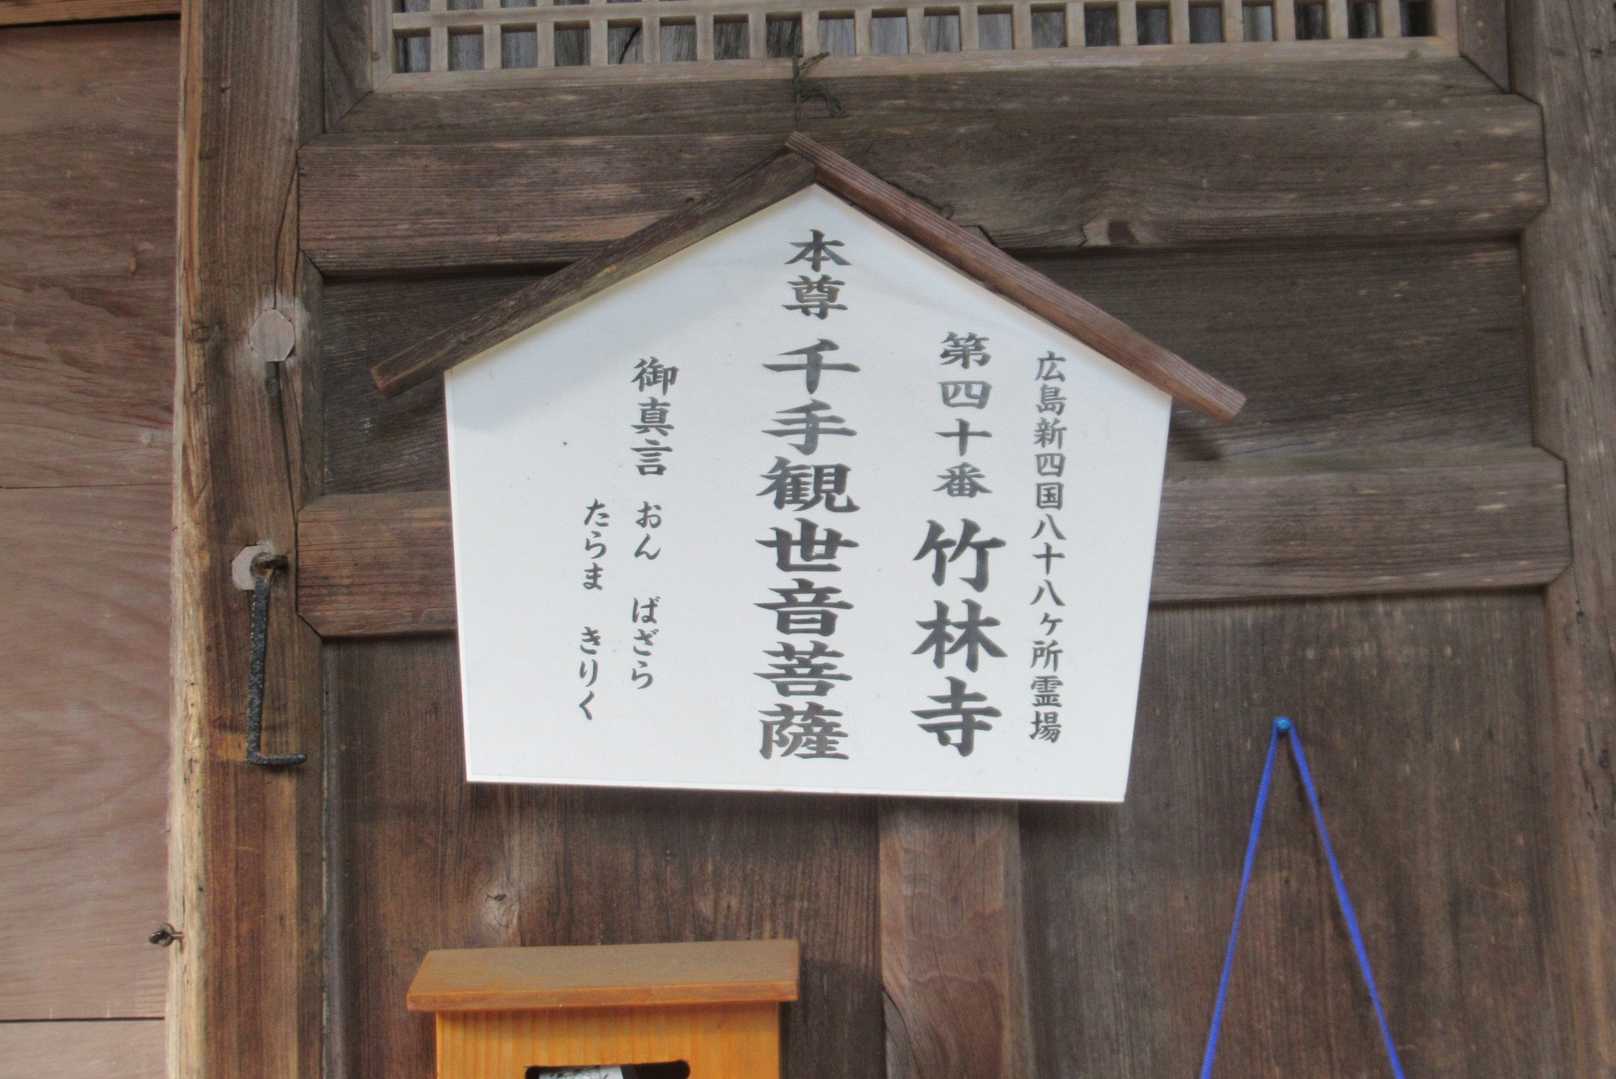 広島新四国八十八ヶ所霊場
第四十番 竹林寺
本尊 千手観世音菩薩
御真言 おん ばざら
たらま きりく